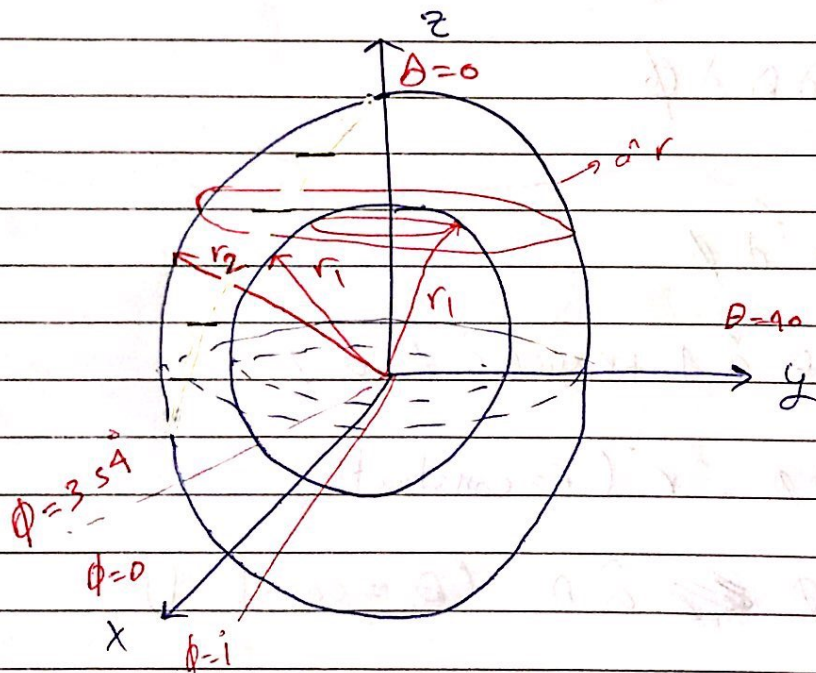 z
θ=0
â r
r2
r1
r1
θ=90
y
ϕ=359
ϕ=0
X
ϕ=1